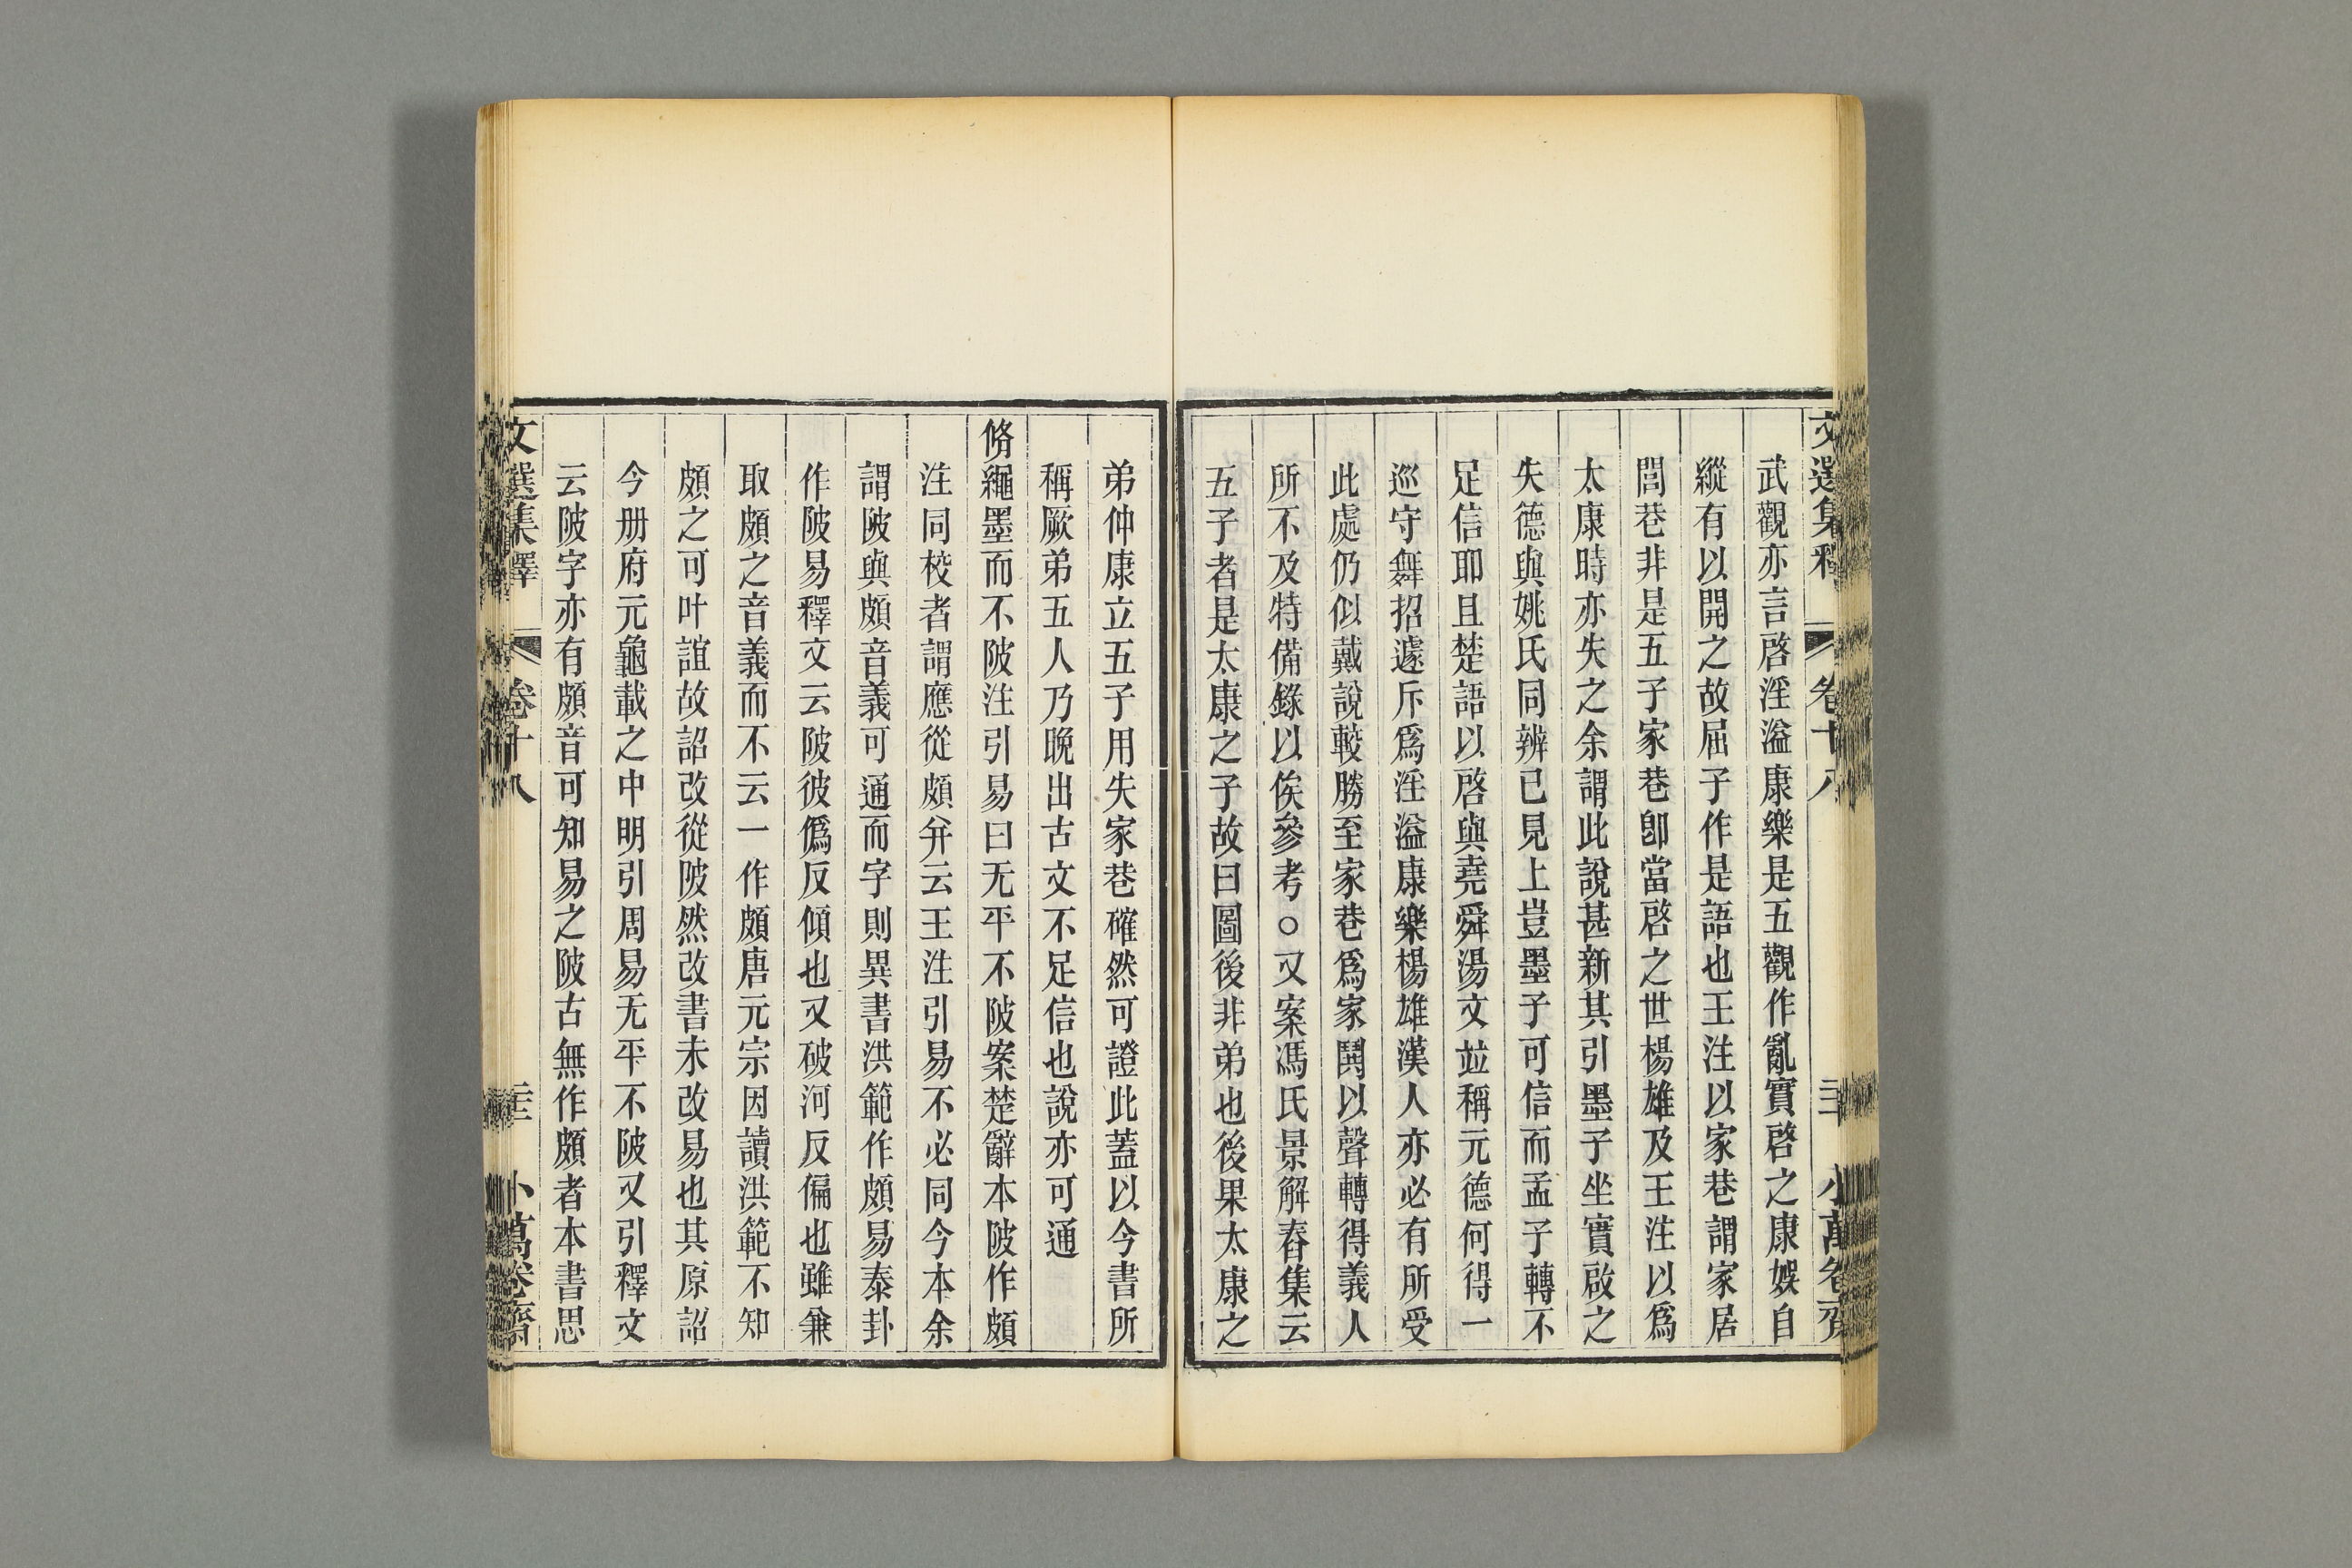 文選集釋 卷十八 小萬卷齋
武觀亦言啓淫溢康樂是五觀作亂實啓之康娛自
縱有以開之故屈子作是語也王注以家巷謂家居
閭巷非是五子家巷卽當啓之世楊雄及王注以爲
太康時亦失之余謂此說甚新其引墨子坐實啟之
失德與姚氏同辨已見上豈墨子可信而孟子轉不
足信耶且楚語以啓與堯舜湯文竝稱元德何得一
巡守舞招遽斥爲淫溢康樂楊雄漢人亦必有所受
此處仍似戴說較勝至家巷爲家鬨以聲轉得義人
所不及特備錄以俟參考○又案馮氏景解舂集云
五子者是太康之子故曰圖後非弟也後果太康之
弟仲康立五子用失家巷確然可證此蓋以今書所
稱厥弟五人乃晚出古文不足信也說亦可通
脩繩墨而不陂注引易曰无平不陂案楚辭本陂作頗
注同校者謂應從頗并云王注引易不必同今本余
謂陂與頗音義可通而字則異書洪範作頗易泰卦
作陂易釋文云陂彼僞反傾也又破河反偏也雖兼
取頗之音義而不云一作頗唐元宗因讀洪範不知
頗之可叶誼故詔改從陂然改書未改易也其原詔
今册府元龜載之中明引周易无平不陂又引釋文
云陂字亦有頗音可知易之陂古無作頗者本書思
文選集釋 卷十八 小萬卷齋